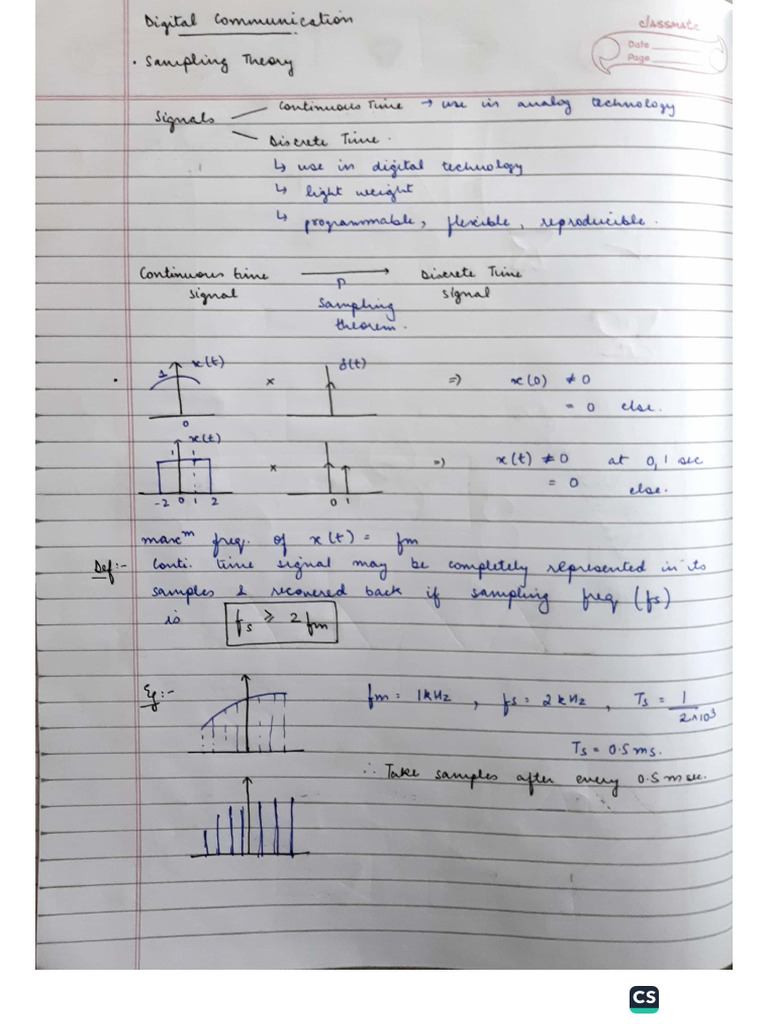 Digital Communication
classmate
Date
Page
• Sampling Theory
Signals
Continuous Time → use in analog technology
Discrete Time.
↳ use in digital technology
↳ light weight
↳ programmable, flexible, reproducible.
Continuous time signal → Discrete Time signal
Sampling theorem.
• 1 x(t) × δ(t) => x(0) ≠ 0
0 = 0 else.
1 x(t) × => x(t) ≠ 0 at 0,1 sec
-2 0 1 2 0 1 = 0 else.
maxᵐ freq. of x(t) = fm
Def:- Conti. time signal may be completely represented in its
samples & recovered back if sampling freq (fs)
is fs ⩾ 2 fm
Eg:- fm = 1kHz, fs = 2kHz, Ts = 1/2×10³
Ts = 0.5ms.
∴ Take samples after every 0.5msec.
CS